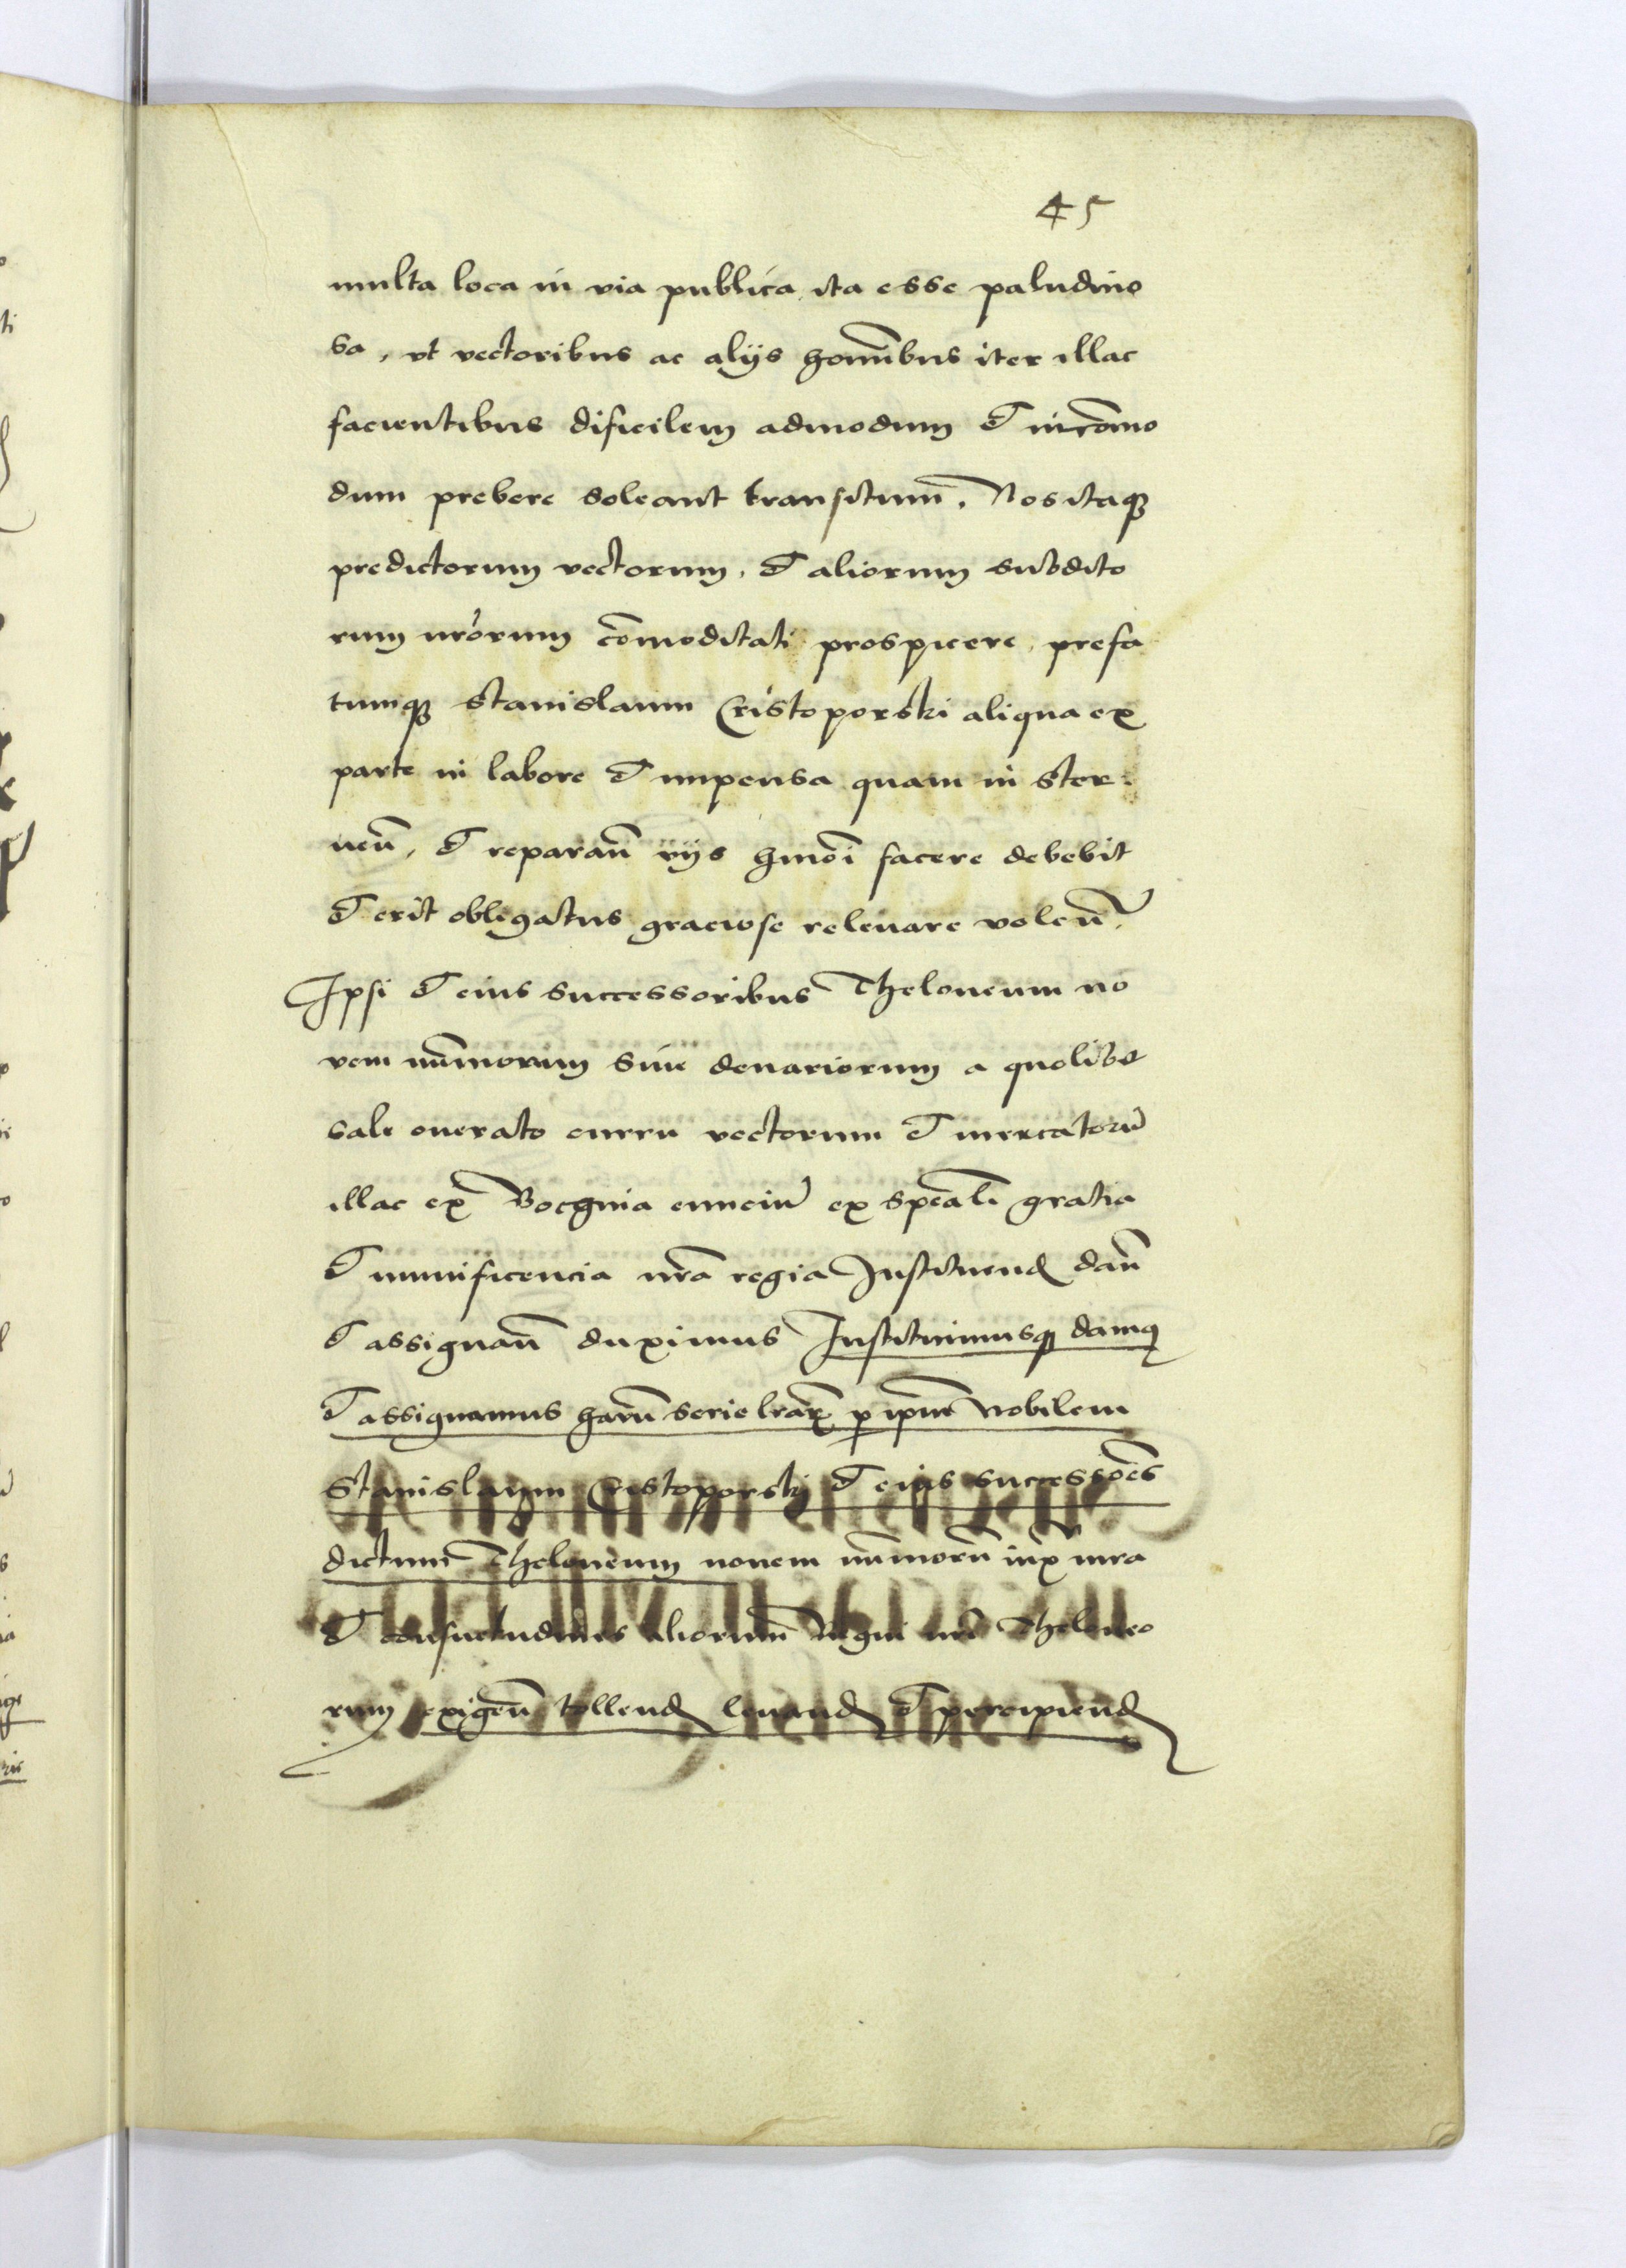 45
multa loca in via publica ita esse paludino
sa, vt vectoribus ac alijs hominibus iter illac
facientibus dificilem admodum et incōmo
dum prebere soleant transitum. Nos itaqꝫ
predictorum vectorum, et aliorum subdito
rum nrōrum cōmoditati prospicere, prefa
tumqꝫ Stanislaum Cristoporski aliqua ex
parte in labore et impensa quam in ster.
neñ, et reparañ vijs hmōi facere debebit
et erit obligatus graciose releuare voleñ.
Ipsi et eius successoribus Theloneum no
vem nūmorum siue denariorum a quolibet
sale onerato curru vectorum et mercatorū
illac ex Bochnia euneiū ex speāli gratia
et munificencia nrā regia Instituend dañ
et assignañ duximus Instituimusqꝫ damqꝫ
et assignamus harū serie lrāꝝ ꝑ ipm̄ Nobilem
Stanislaum Cristoporski et eius successōēs
dictum Theloneum nouem nūmorū iux̄ iura
et consuetudines aliorum Regni nrī Theloneo
rum exigeñ tollend leuand et percipiend